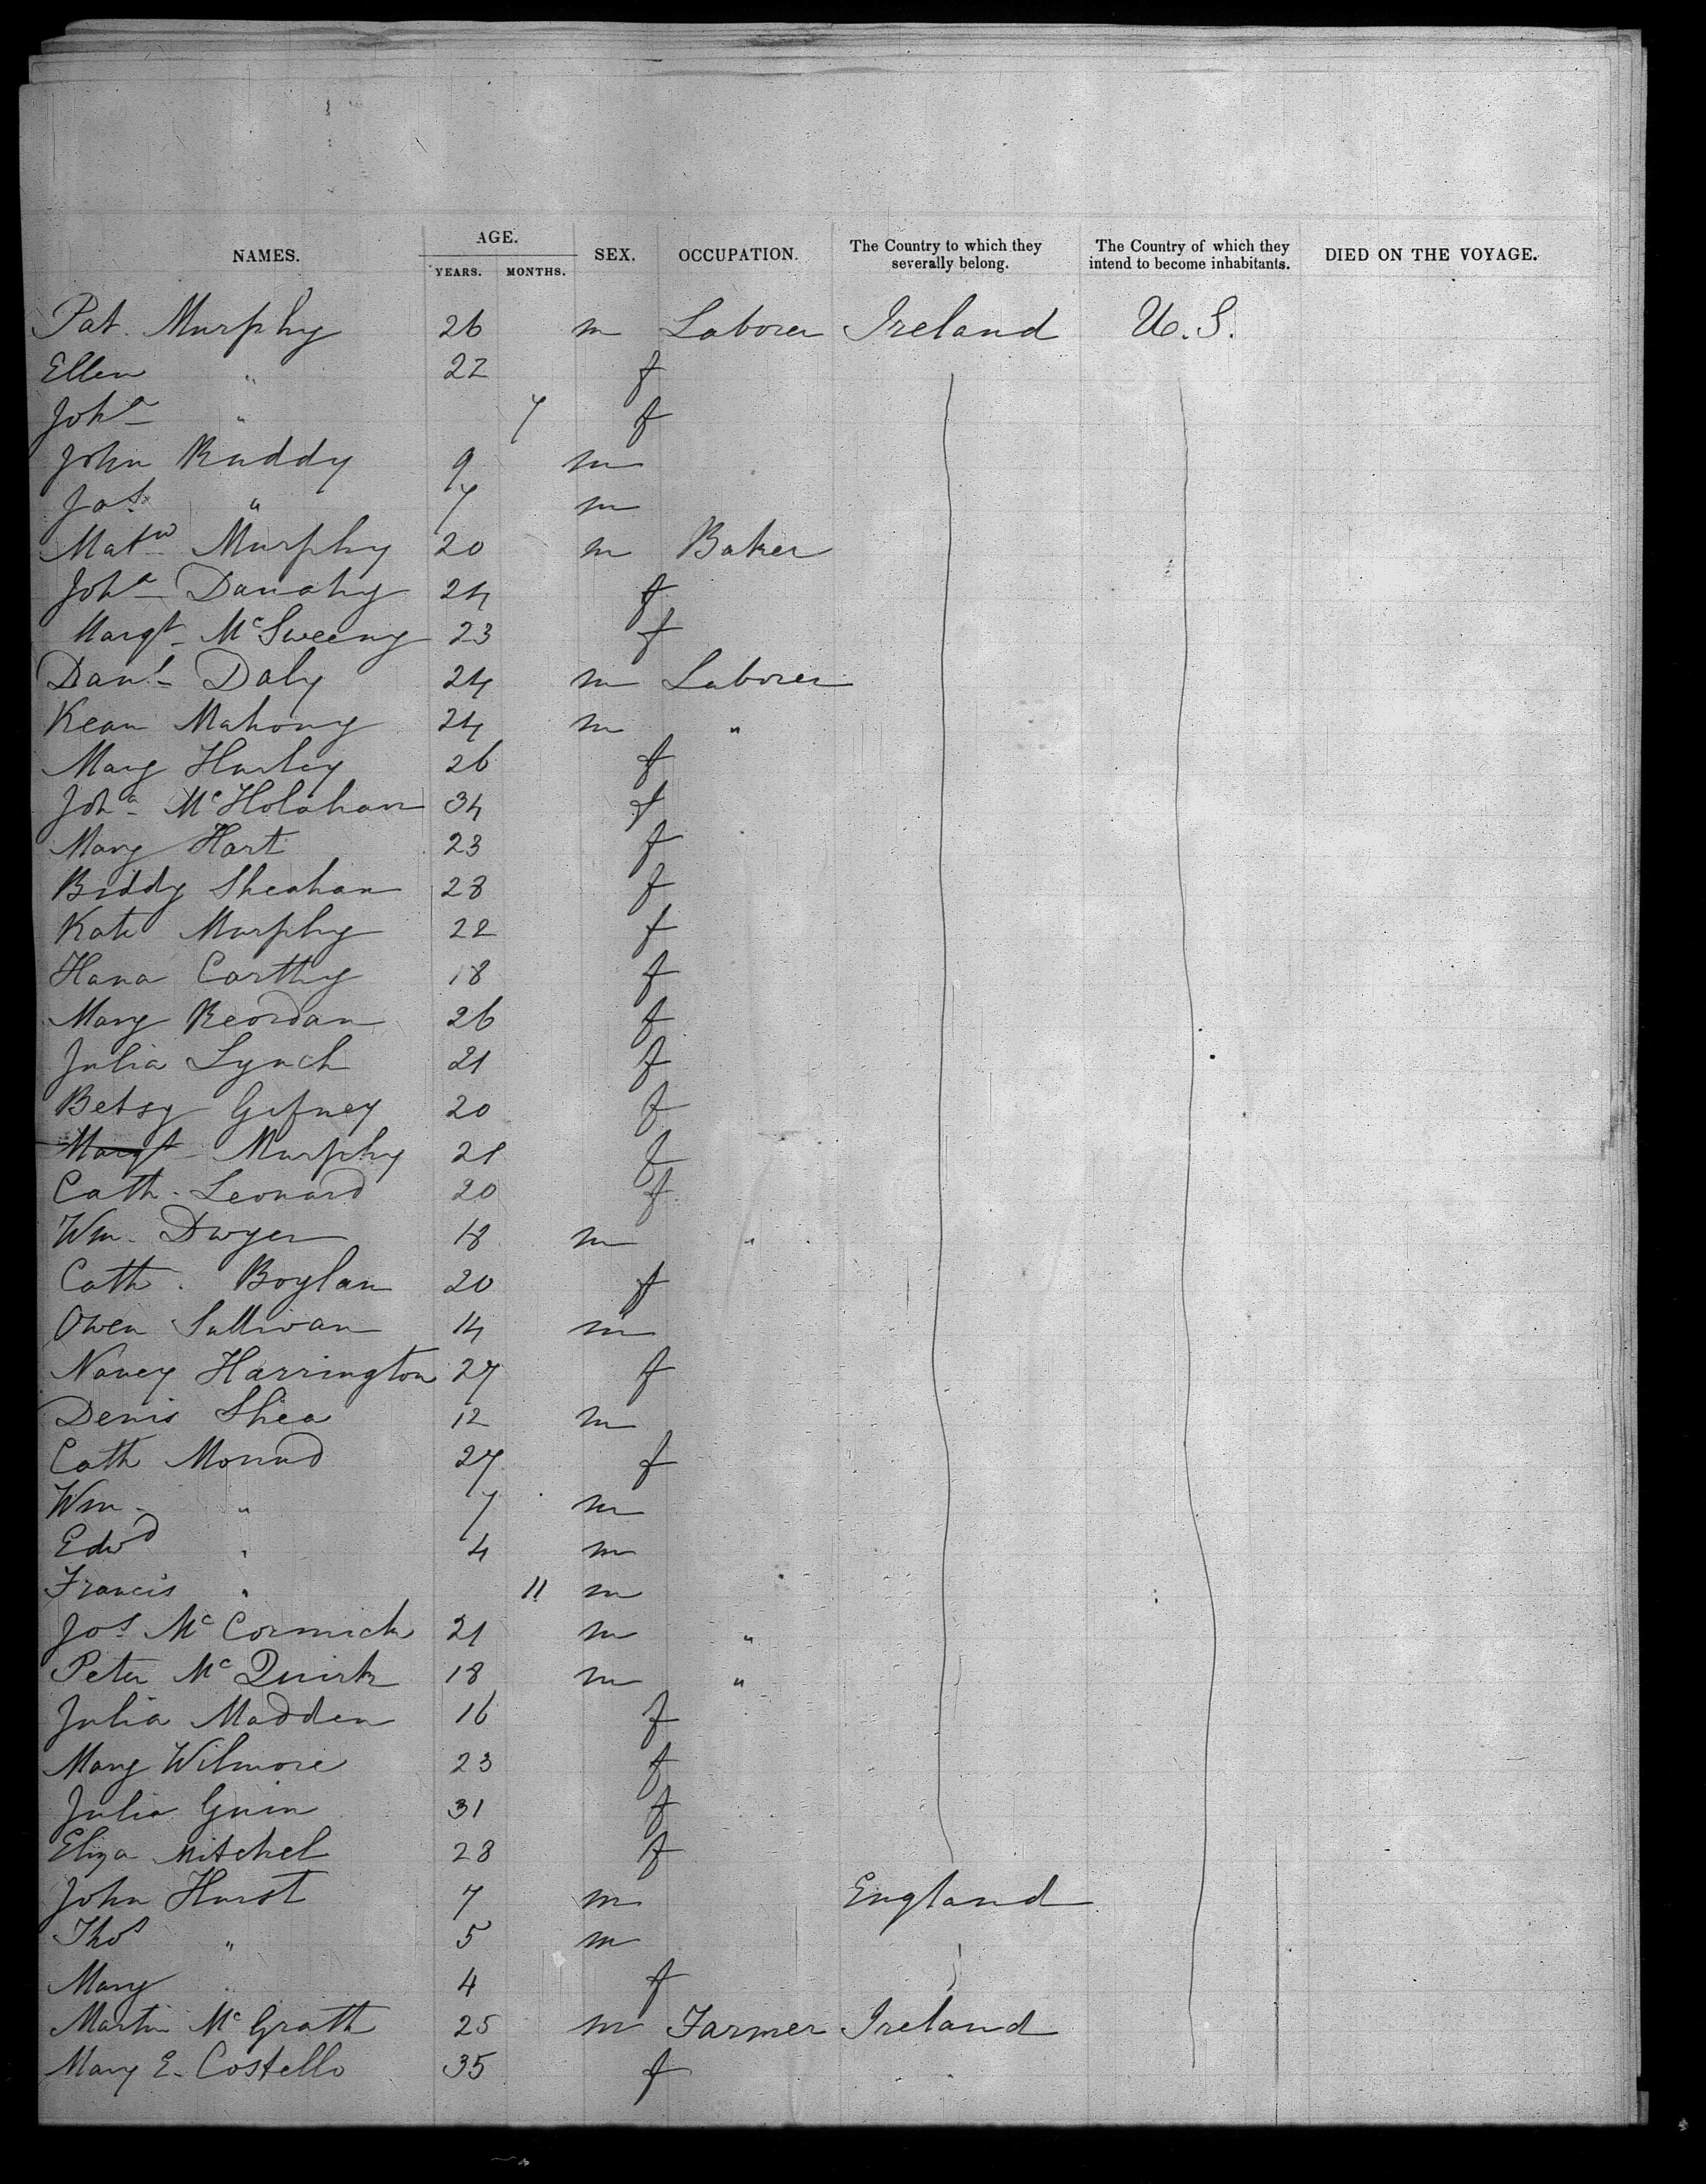 NAMES. AGE. YEARS. MONTHS. SEX. OCCUPATION. The Country to which they severally belong. The Country of which they intend to become inhabitants. DIED ON THE VOYAGE.
Pat. Murphy 26 m Laborer Ireland U.S.
Ellen " 22 f
Joha " 7 f
John Ruddy 9 m
Jas " 7 m
Matw Murphy 20 m Baker
Joha Danahy 24 f
Margt McSweeny 23 f
Danl Daly 24 m Laborer
Kean Mahony 24 m "
Mary Hurley 26 f
Joha McHolahan 34 f
Mary Hart 23 f
Biddy Sheahan 28 f
Kate Murphy 22 f
Hana Carthy 18 f
Mary Reordan 26 f
Julia Lynch 21 f
Betsy Gifney 20 f
Margt Murphy 21 f
Cath. Leonard 20 f
Wm. Dwyer 18 m "
Cath. Boylan 20 f
Owen Sullivan 14 m
Nancy Harrington 27 f
Denis Shea 12 m
Cath 27 f
Wm " 7 m
Edwd " 4 m
Francis " 11 m
Jos McCormick 21 m "
Peter McQuirk 18 m "
Julia Madden 16 f
Mary Wilmore 23 f
Julia Guin 31 f
Eliza Mitchel 28 f
John Hurst 7 m England
Thos " 5 m
Mary " 4 f
Martin McGrath 25 m Farmer Ireland
Mary E. Costello 35 f